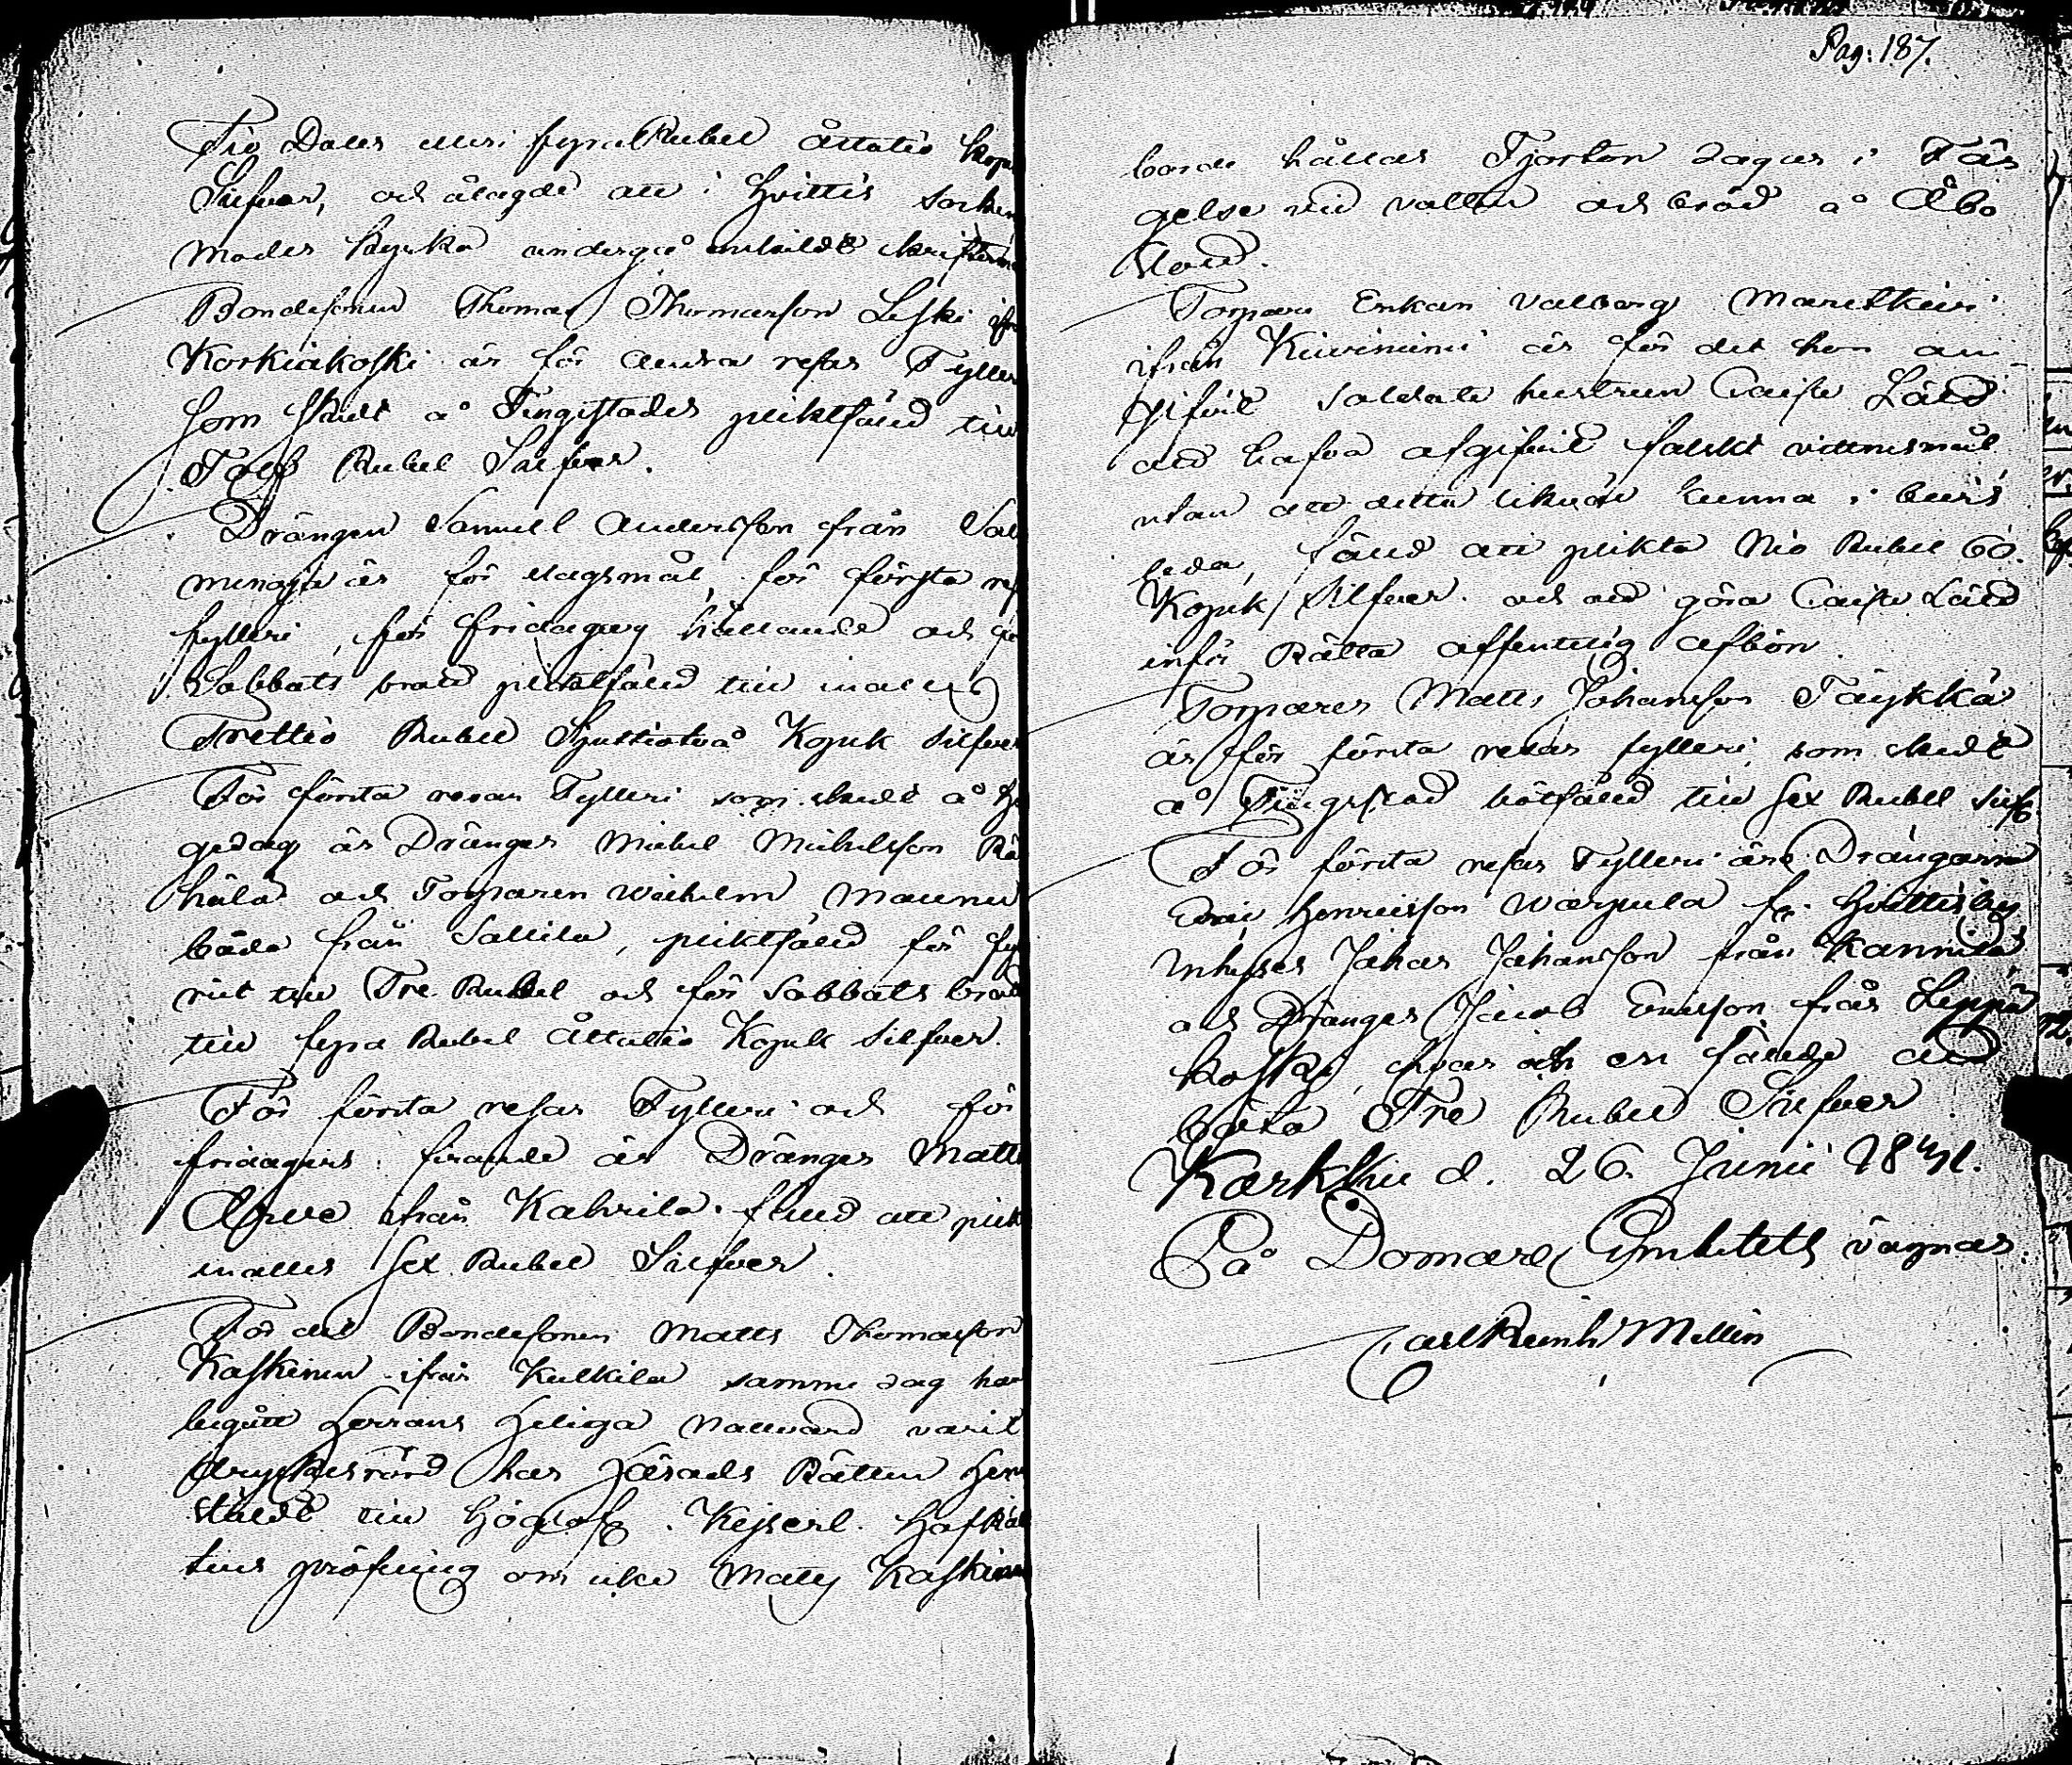 Tio Daler eller fyra Rubel åttatio kop
Silfver, och ålagde att i Hvittis socken
Moder kyrka undergå enskildt skrifterm
Bondesonen Thomas Thomasson Leski ifr
Korkiakoski är för andra resas Fylleri
som skedt å Tingstaden pliktfäld till
Tolf Rubel Silfver.
Drängen Samuel Andersson från Sal
menoja är för slagsmål, för första res
fylleri, för fridagars hållande och för
Sabbats brott pliktfäld till inalles
Trettio Rubel Sjuttiotvå Kopek silfver
För första resan Fylleri som skedt å Hel
gedag är Drängen Michel Michelsson Rä
hälä och Torparen Wilhelm Maunu
båda från Sallila, pliktfäld för fyl
riet till Tre Rubel och för Sabbats brott
till fyra Rubel åttatio Kopek silfver.
För första resas Fylleri och för
fridagens firande är Drängen Matts
ifrån Kahvila fäld att plik
inalles Sex Rubel Silfver.
För det Bondesonen Matts Thomasson
Kaskinen ifrån Kulkila samma dag han
begått Herrans Heliga Nattvard varit
dryckesrörd har Härads Rätten Hem
stäldt till Höglofl. Kejserl. HofRät
tens pröfning om icke Matts Kaskinen
Pag: 187.
borde hållas Fjorton dagar i Fän
gelse vid vatten och bröd å Åbo
Slott.
Torpare Enkan Valborg
ifrån Kiviniemi är för det hon an
gifvit Soldats hustrun Caisa Läld
att hafva afgifvit falskt vittnesmål
utan att detta likväl kunna i bevis
leda, fäld att plikta Nio Rubel 60.
Kopek Silfver och att göra Caisa Läld
inför Rätta offentelig afbön.
Torparen Matts Johansson Täykkä
är för första resas fylleri, som skedt
å Tingsstad bötfäld till Sex Rubel Silf.
För första resas Fylleri äro Drängarne
Eric Henricsson Warpula fr. Hvittisby
Inhyses Johan Johansson från Kannisto
och Drängen Jacob Ericsson från Leppä
koski, hvar och en fälde att
böta Tre Rubel Silfver
Karkku d. 26. Junii 1841.
På Domare Embetets vägnar.
Carl Reinh Mellin